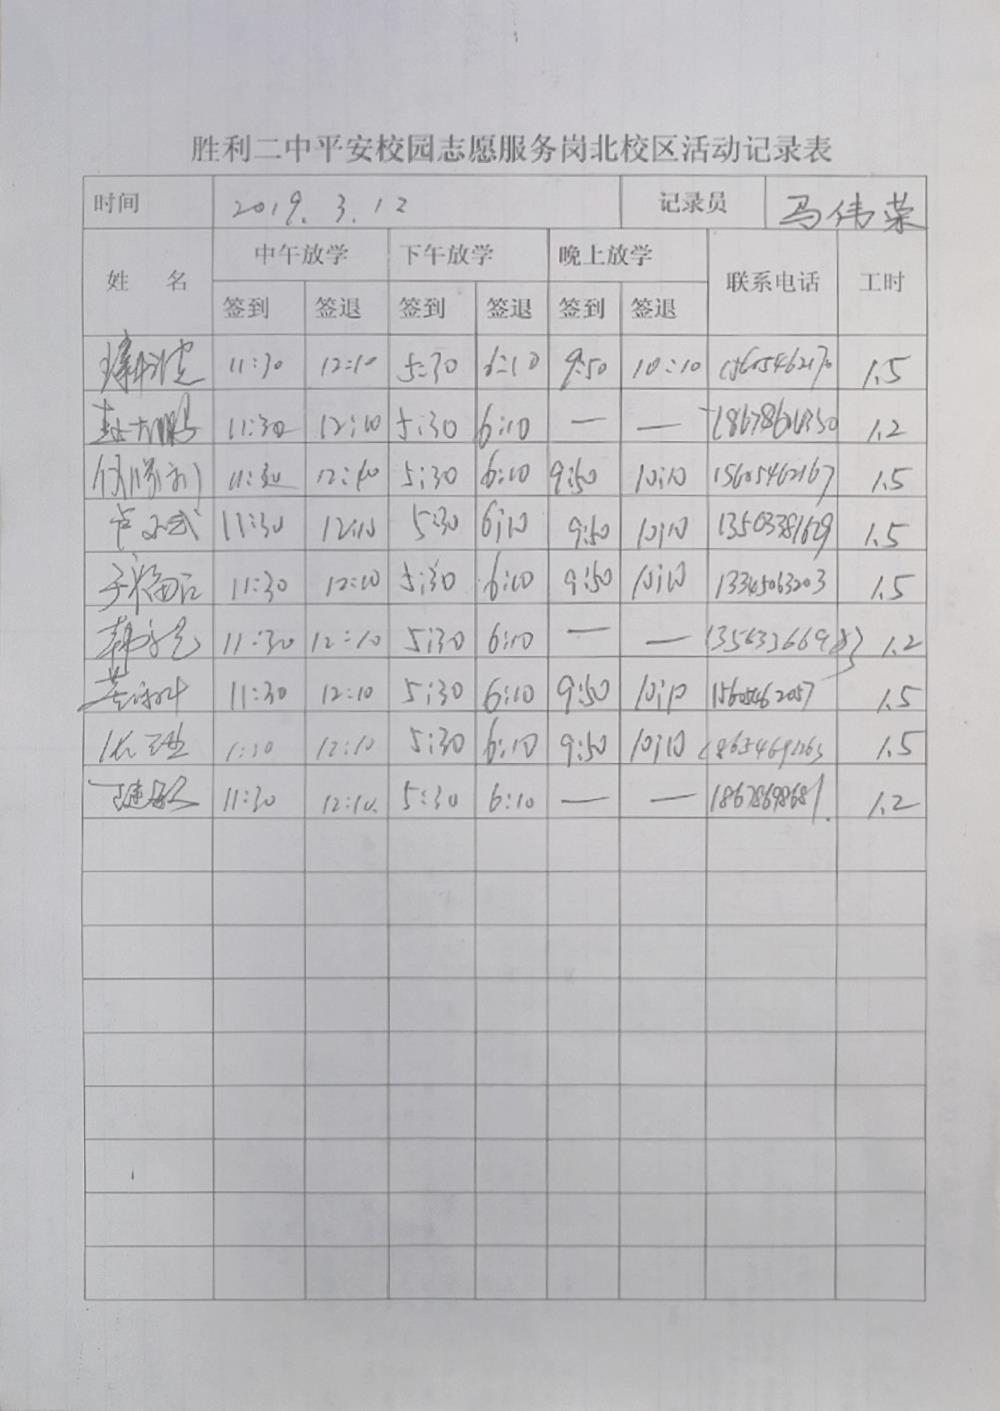 胜利二中平安校园志愿服务岗北校区活动记录表
时间 2019.3.12 记录员 马伟荣
姓 名 中午放学 下午放学 晚上放学 联系电话 工时
签到 签退 签到 签退 签到 签退
11:30 12:10 5:30 6:10 9:50 10:10 15605462170 1.5
11:30 12:10 5:30 6:10 — — 1.2
11:30 12:10 5:30 6:10 9:50 10:10 15605462167 1.5
11:30 12:10 5:30 6:10 9:50 10:10 1.5
11:30 12:10 5:30 6:10 9:50 10:10 13345063203 1.5
11:30 12:10 5:30 6:10 — — 13563266983 1.2
11:30 12:10 5:30 6:10 9:50 10:10 15605462057 1.5
1:30 12:10 5:30 6:10 9:50 10:10 1.5
11:30 12:10. 5:30 6:10 — — 18678698681. 1.2